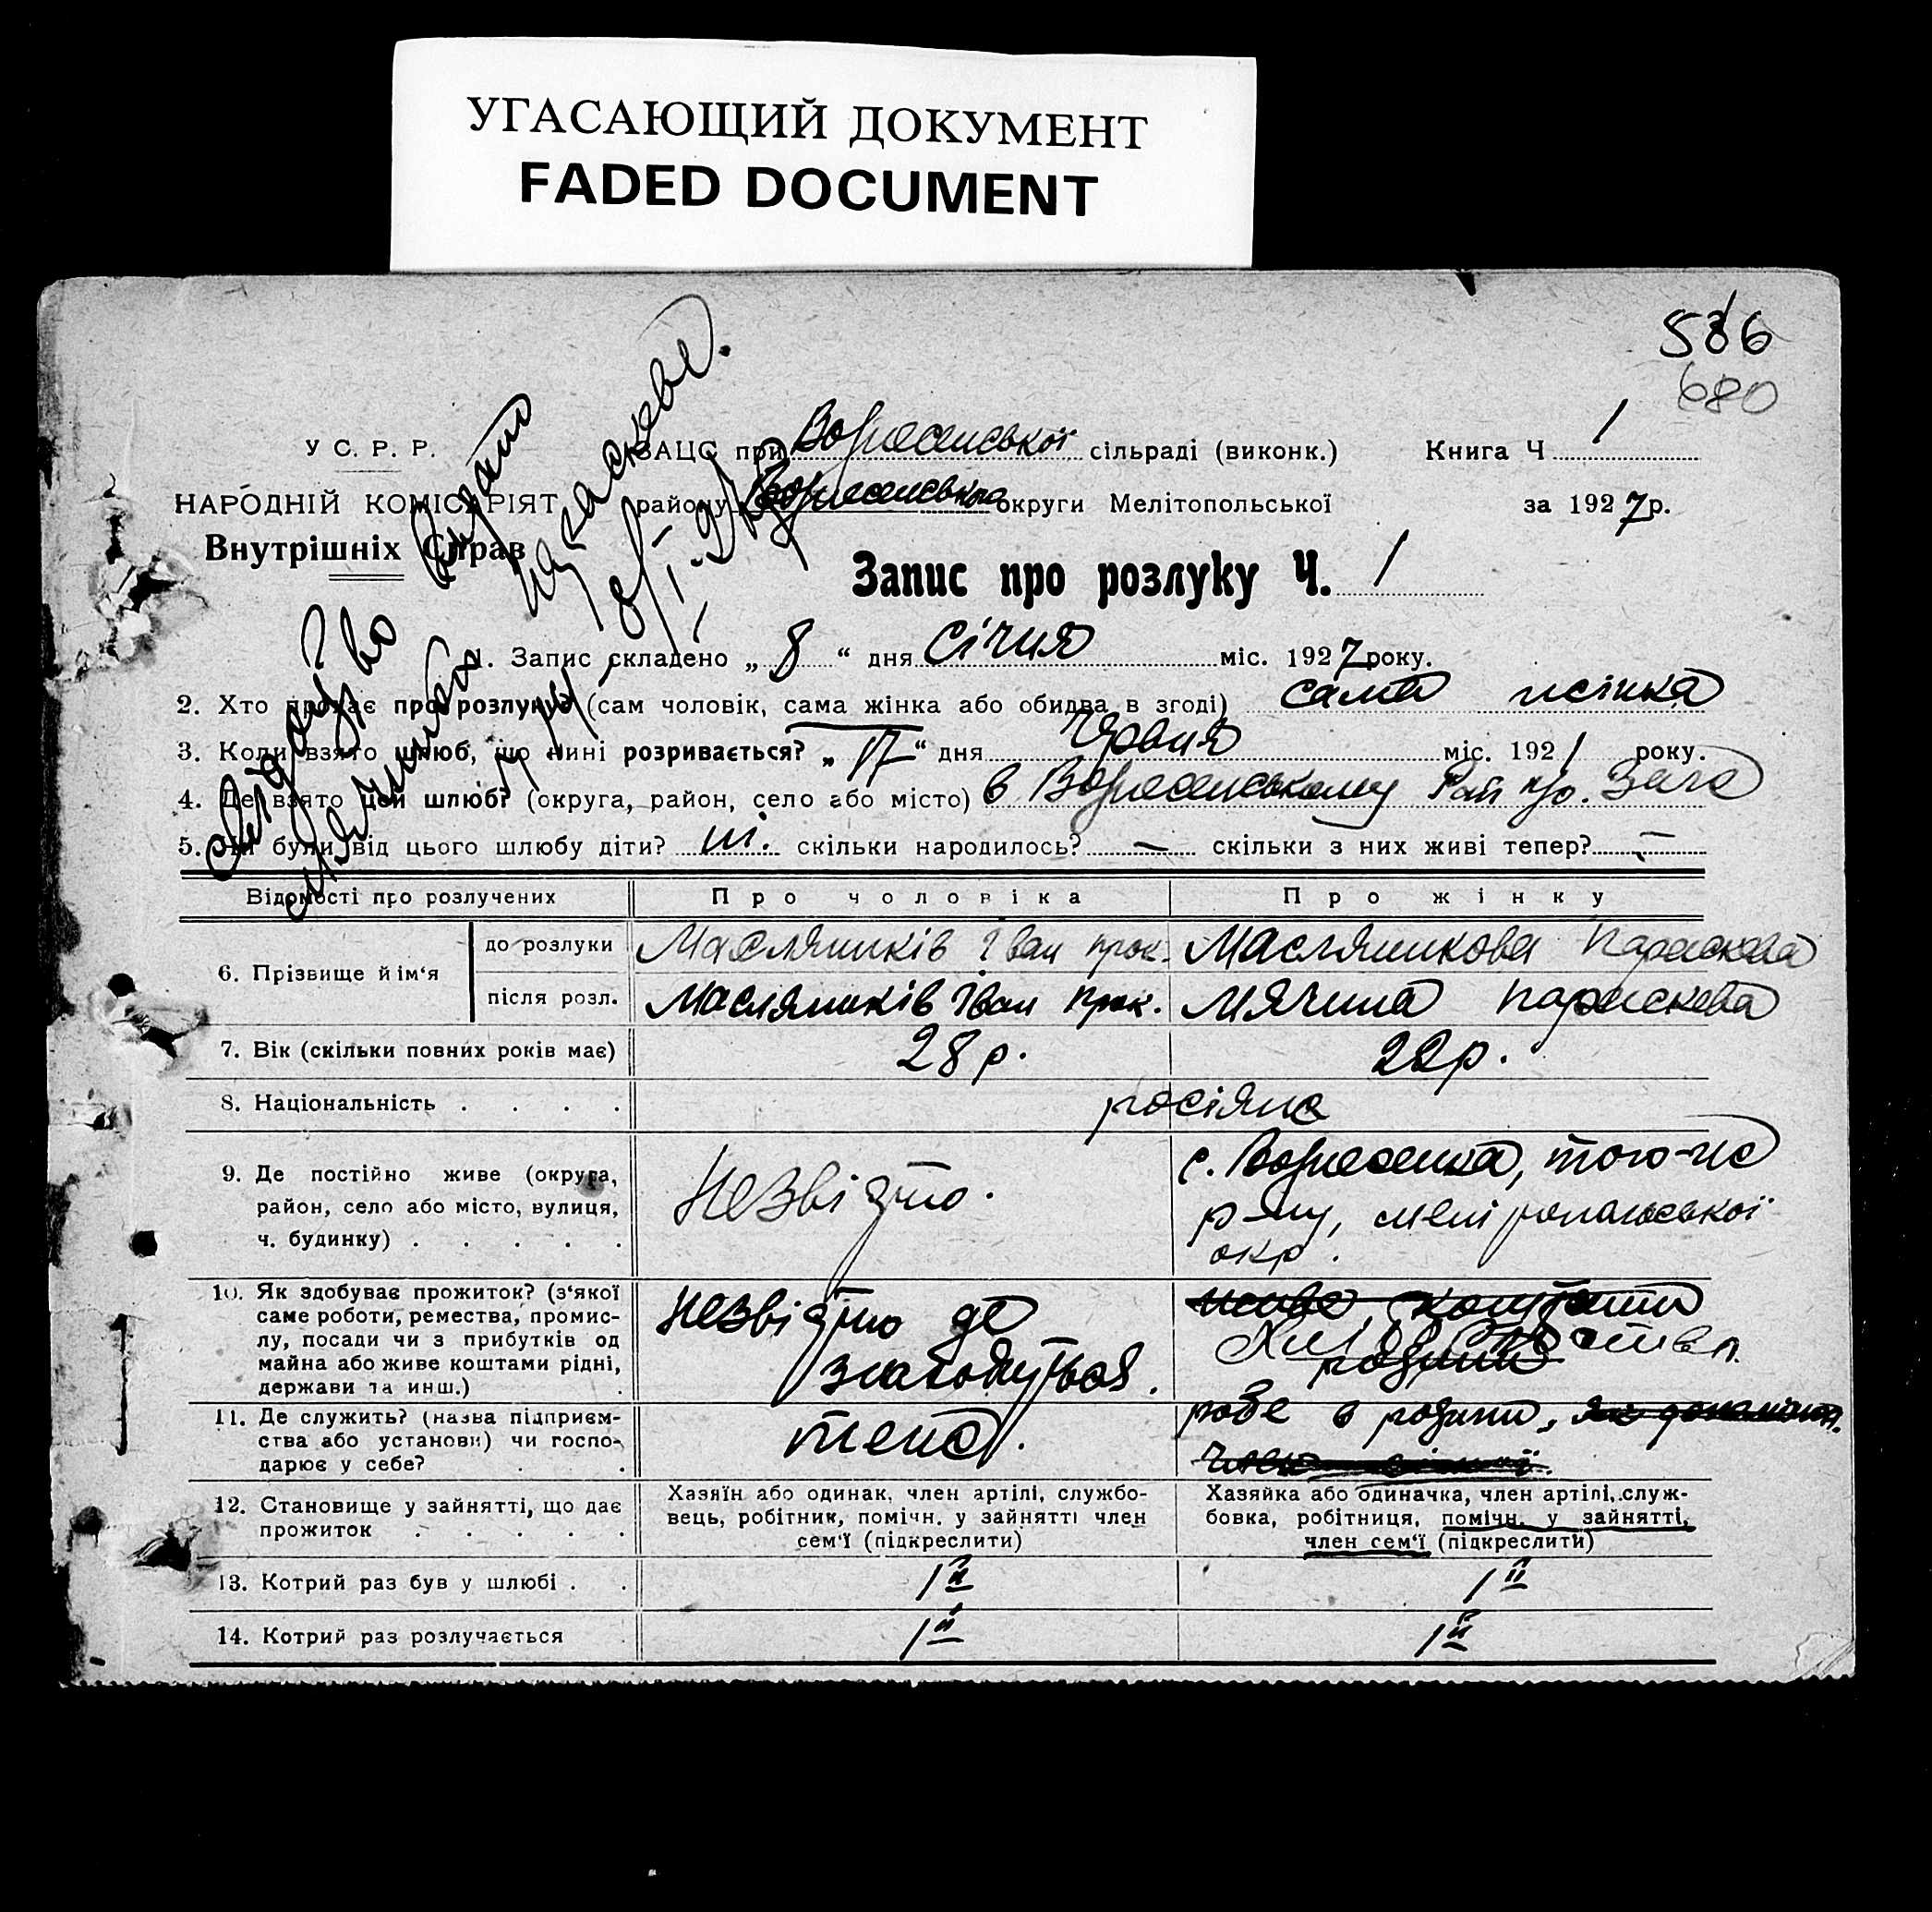 УГАСАЮЩИЙ ДОКУМЕНТ
FADED DOCUMENT
586
680
У С. Р. Р.
НАРОДНІЙ КОМІСАРІЯТ
Внутрішніх Справ
ЗАЦС при Вознесенської сільраді (виконк.)
району Вознесенського округи Мелітопольської
Книга Ч 1
за 1927 р.
Свідоцтво видано
Мячиной Параскеве.
8/I-27 р.
Запис про розлуку Ч. 1
1. Запис складено „ 8 “ дня Січня міс. 1927 року.
2. Хто прохає про розлуку? (сам чоловік, сама жінка або обидва в згоді) сама жінка
3. Коли взято шлюб, що нині розривається? „ 17 “ дня Червня міс. 1921 року.
4. Де взято цей шлюб? (округа, район, село або місто) в Вознесенському Рай
5. Чи були від цього шлюбу діти? ні. скільки народилось? — скільки з них живі тепер? —
Відомості про розлучених
Про чоловіка
Про жінку
6. Прізвище й ім‘я
до розлуки
Масляників Іван Прок.
Масляникова Параскева
після розл.
Масляників Іван Прок.
Мячина Параскева
7. Вік (скільки повних років має)
28 р.
22 р.
8. Національність . . . .
росіяне
9. Де постійно живе (округа,
район, село або місто, вулиця,
ч. будинку) . . . . .
Незвідно.
с. Вознесенка, того-же
р-ну, Мелітопольської
окр.
10. Як здобуває прожиток? (з‘якої
саме роботи, ремества, промис-
лу, посади чи з прибутків од
майна або живе коштами рідні,
держави та инш.) .
Незвідно де
знаходиться
родини
11. Де служить? (назва підприєм-
ства або установи) чи госпо-
дарює у себе? . .
тепер.
робе в родини,
12. Становище у зайнятті, що дає
прожиток . . . . .
Хазяїн або одинак, член артілі, службо-
вець, робітник, помічн. у зайнятті член
сем‘ї (підкреслити)
Хазяйка або одиначка, член артілі, служ-
бовка, робітниця, помічн. у зайнятті,
член сем‘ї (підкреслити)
13. Котрий раз був у шлюбі . .
1й
1й
14. Котрий раз розлучається
1й
1й